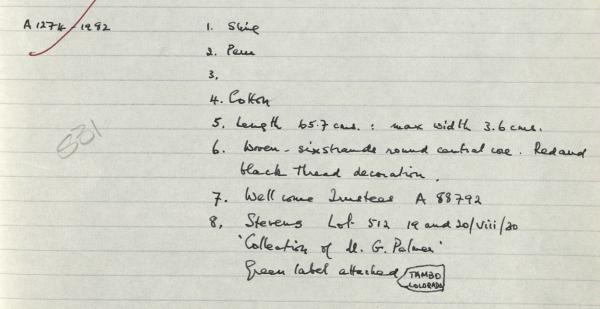 A 1274 - 1982
1. Sling
2. Peru
3.
4. Cotton
5. Length 65.7 cms. : max width 3.6 cms.
6. Woven - six strands round central core. Red and
black thread decoration.
7. Wellcome Trustees A 88792
8. Stevens Lot 512 19 and 20/viii/20
'Collection of M. G. Palmer'
Green label attached TAMBO
COLORADO
531